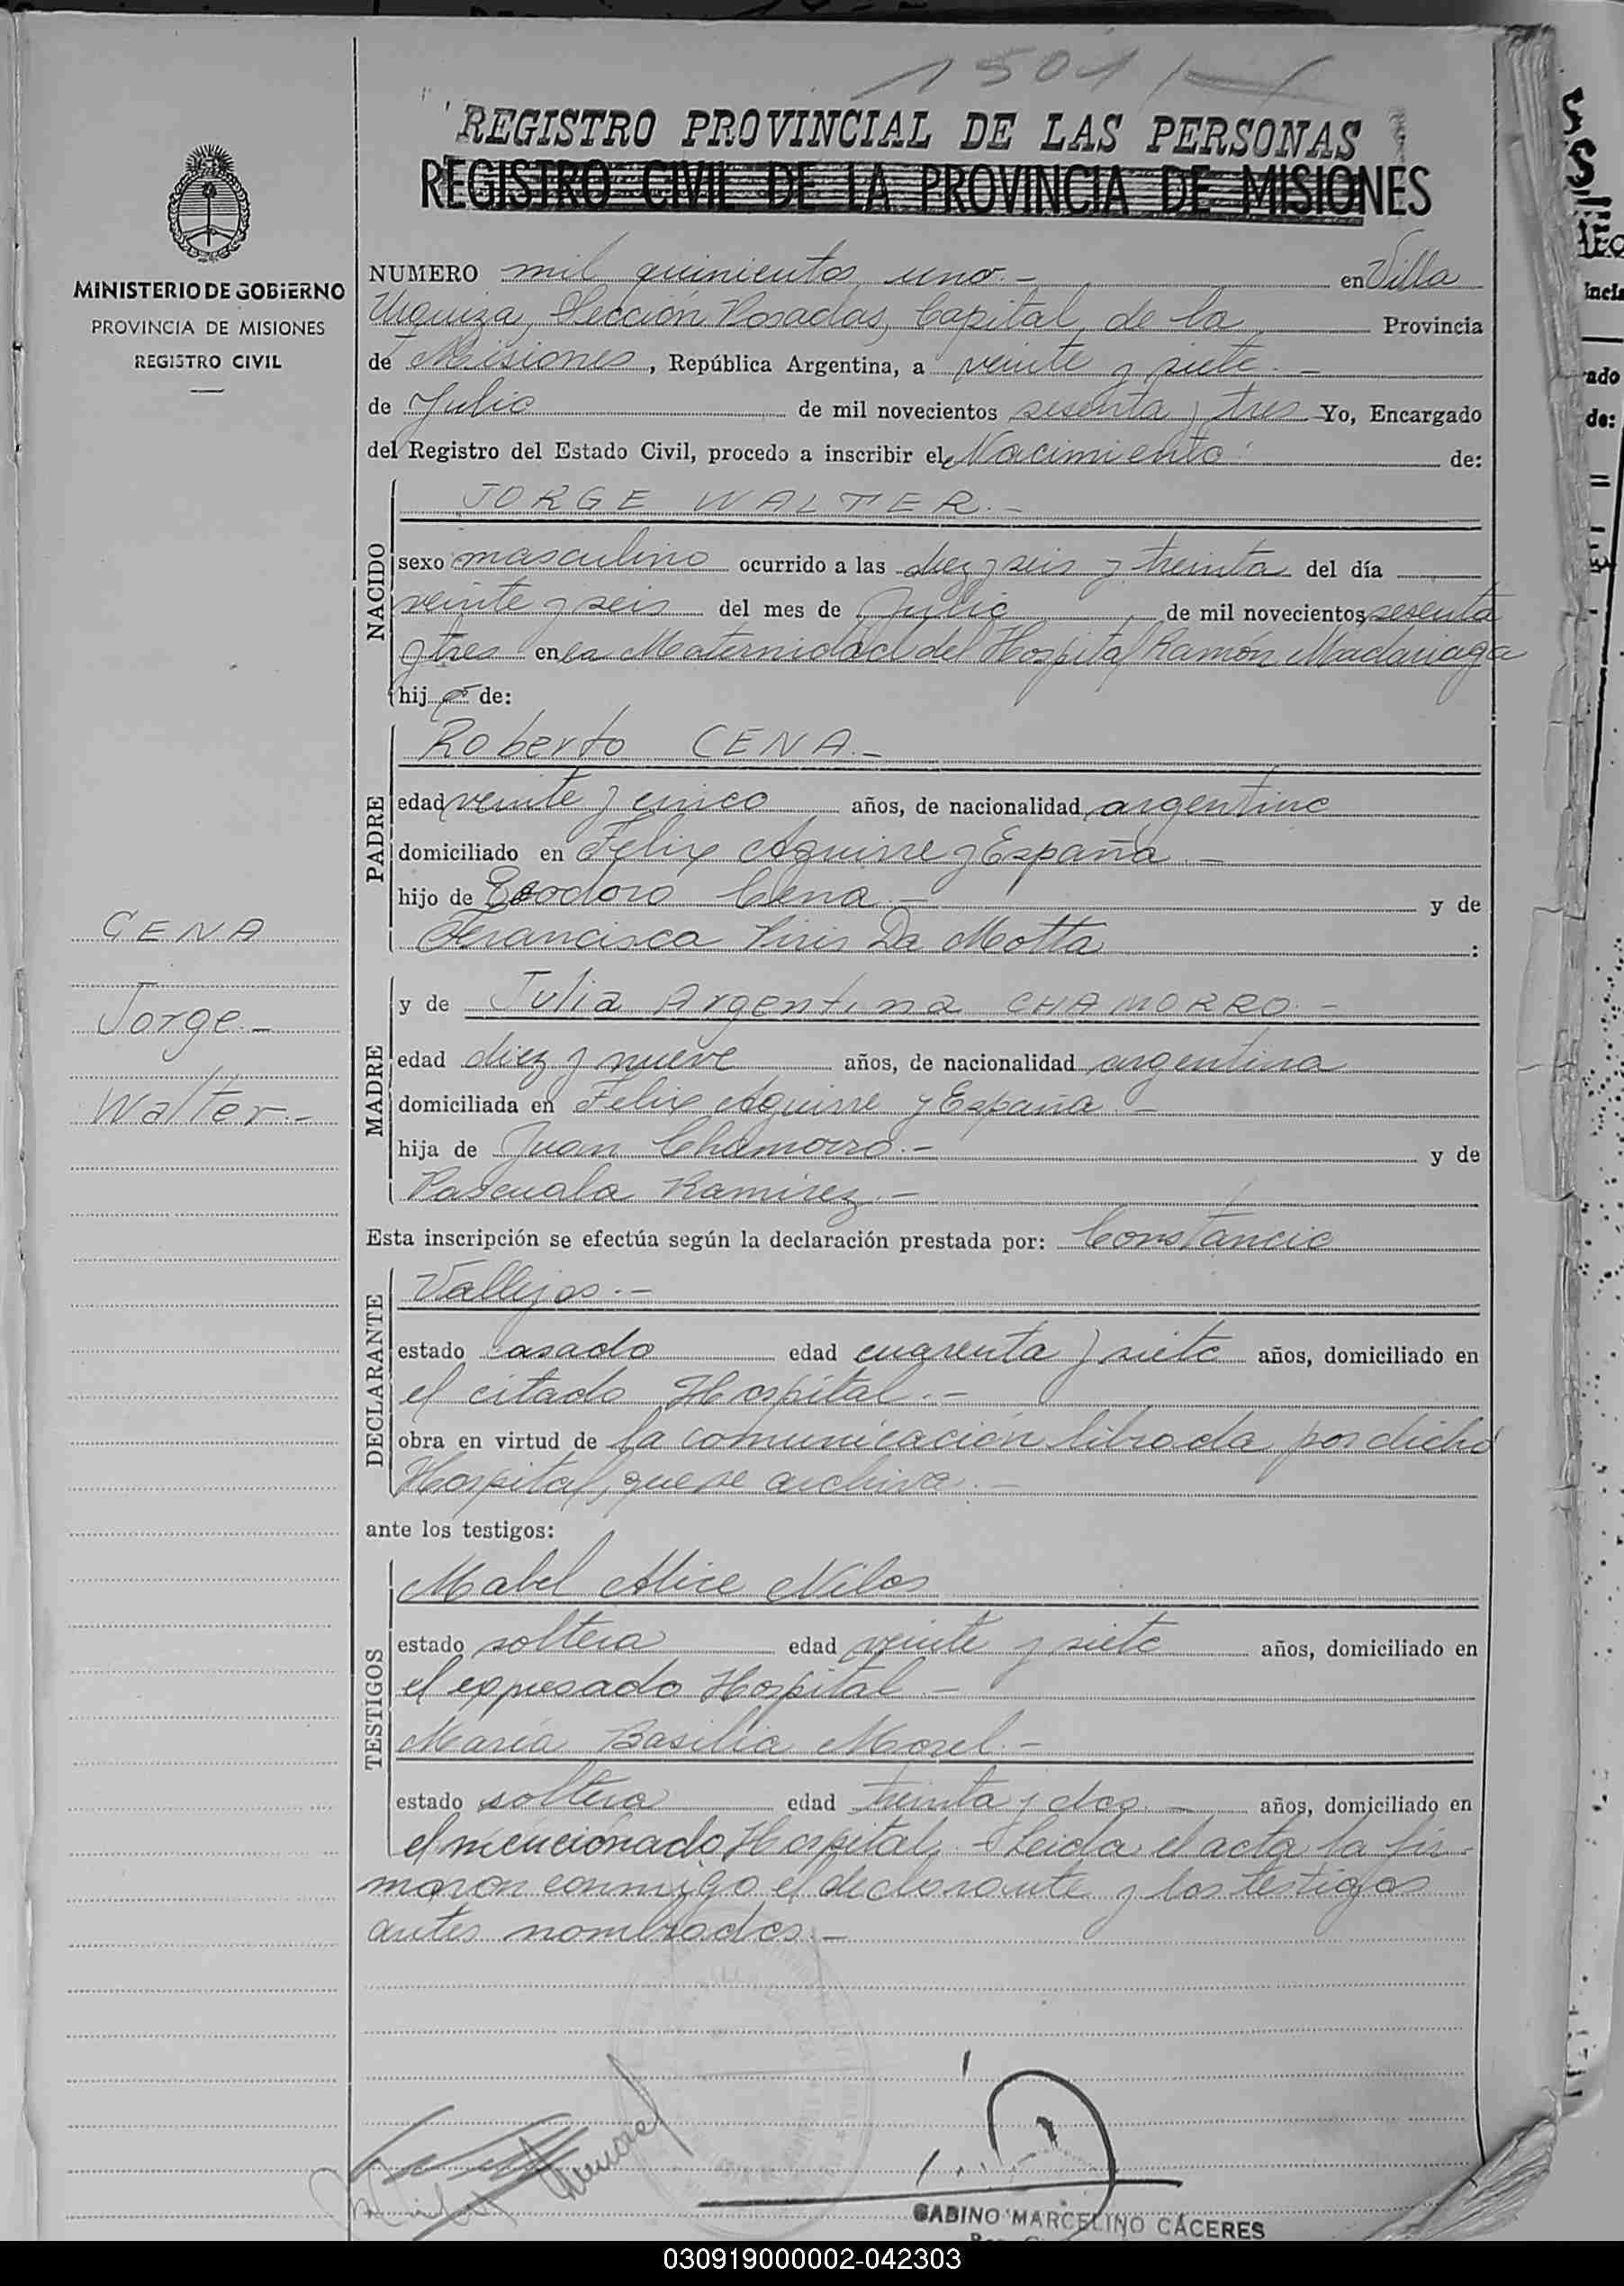 1501
REGISTRO PROVINCIAL DE LAS PERSONAS
REGISTRO CIVIL DE LA PROVINCIA DE MISIONES
MINISTERIO DE GOBIERNO
PROVINCIA DE MISIONES
REGISTRO CIVIL
NUMERO mil quinientos uno.- en Villa
Urquiza, Sección Posadas, Capital de la Provincia
de Misiones, República Argentina, a veinte y siete.-
de Julio de mil novecientos sesenta y tres Yo, Encargado
del Registro del Estado Civil, procedo a inscribir el Nacimiento de:
NACIDO
JORGE WALTER.-
sexo masculino ocurrido a las diez y seis y treinta del día
veinte y seis del mes de Julio de mil novecientos sesenta
y tres en la Maternidad del Hospital Ramón Madariaga
hijo de:
PADRE
Roberto CENA.-
edad veinte y cinco años, de nacionalidad argentino
domiciliado en Felix Aguirre y España.-
hijo de Teodoro Cena.- y de
Francisca Piris Da Motta :
CENA
Jorge.-
Walter.-
MADRE
y de Julia Argentina CHAMORRO.-
edad diez y nueve años, de nacionalidad argentina
domiciliada en Felix Aguirre y España.-
hija de Juan Chamorro.- y de
Pascuala Ramirez.-
Esta inscripción se efectúa según la declaración prestada por: Constancio
DECLARANTE
Vallejos.-
estado casado edad cuarenta y siete años, domiciliado en
el citado Hospital.-
obra en virtud de la comunicación librada por dicho
Hospital, que se archiva.-
ante los testigos:
TESTIGOS
Mabel Alice Nilos
estado soltera edad veinte y siete años, domiciliado en
el expresado Hospital.-
María Basilia Morel.-
estado soltera edad treinta y dos.- años, domiciliado en
el mencionado Hospital.- Leida el acta la fir-
maron conmigo el declarante y los testigos
antes nombrados.-
GABINO MARCELINO CÁCERES
030919000002-042303